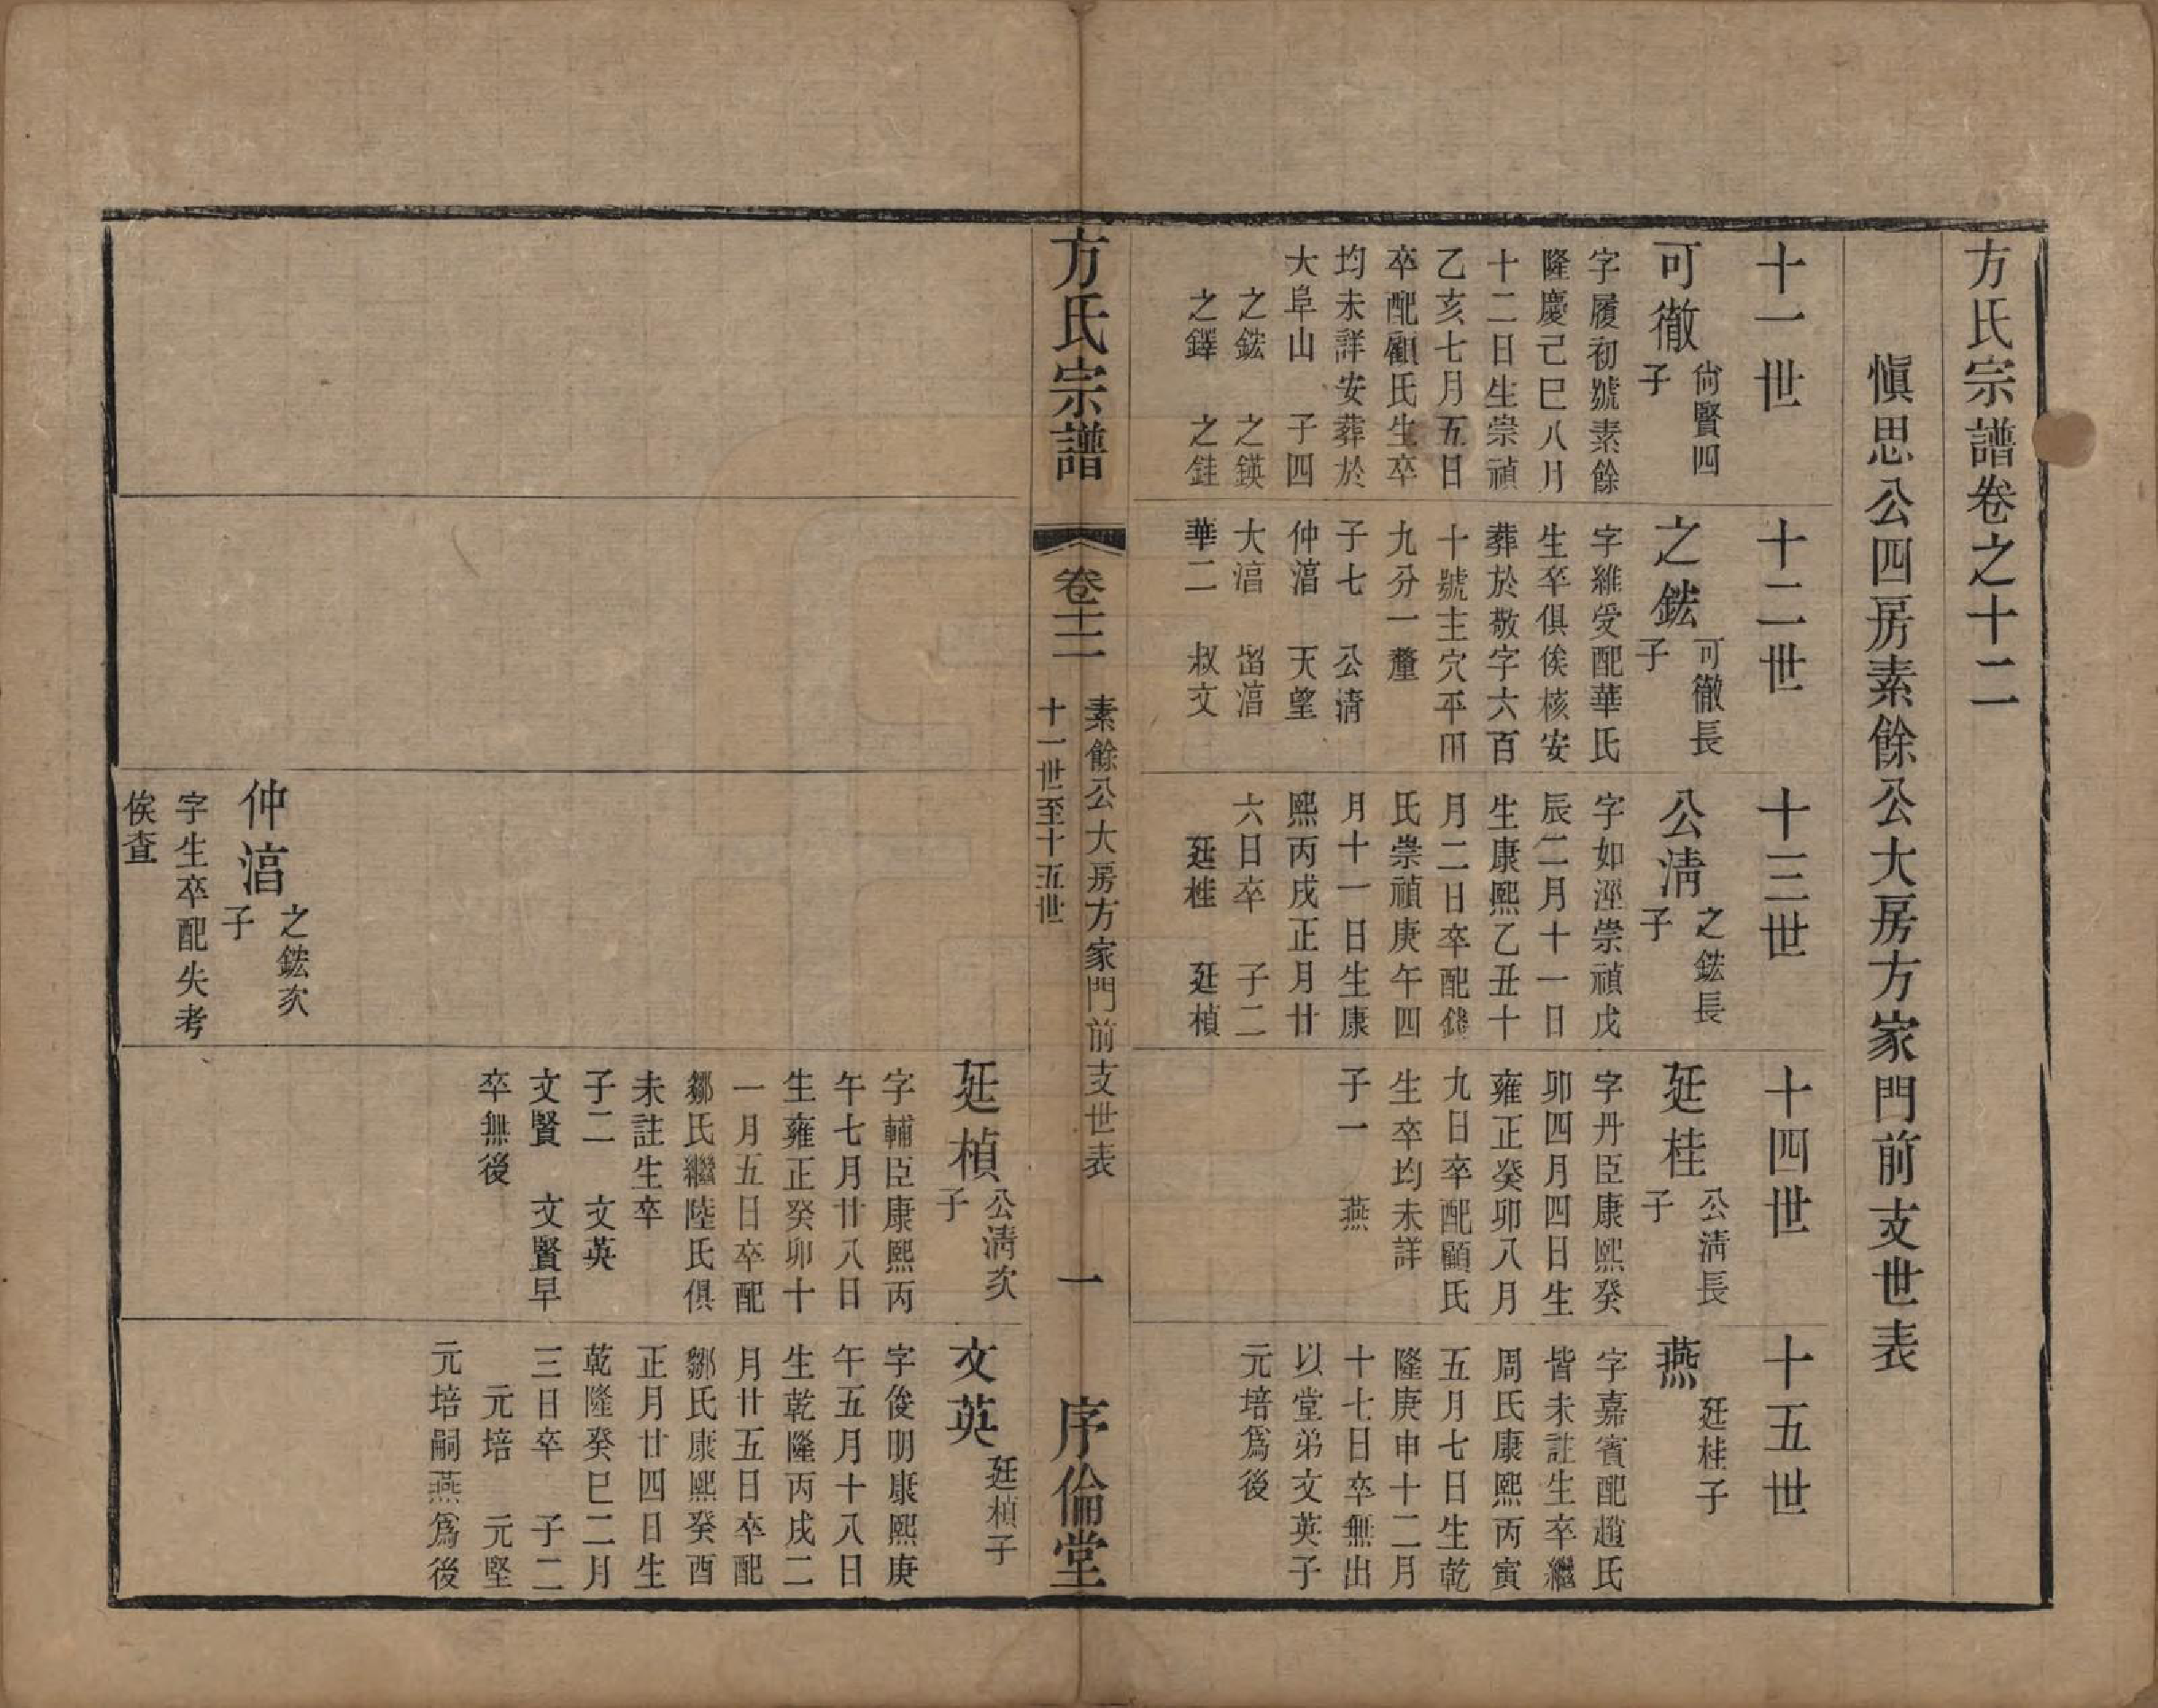 方氏宗譜卷之十二
愼思公四房素餘公大房方家門前支世表
十一世
可徹
尙賢四
子
字履初號素餘
隆慶己巳八月
十二日生崇禎
乙亥七月五日
卒配顧氏生卒
均未詳安葬於
大阜山　子四
之鋐　之鍈
之鐸　之銈
十二世
之鋐
可徹長
子
字維受配華氏
生卒俱俟核安
葬於敬字六百
十號主穴平田
九分一釐
子七　公淸
仲湻　天望
大湻　畱湻
華二　叔文
十三世
公淸
之鋐長
子
字如涇崇禎戊
辰二月十一日
生康熙乙丑十
月二日卒配錢
氏崇禎庚午四
月十一日生康
熙丙戌正月廿
六日卒　子二
廷桂　廷楨
十四世
廷桂
公淸長
子
字丹臣康熙癸
卯四月四日生
雍正癸卯八月
九日卒配顧氏
生卒均未詳
子一　燕
十五世
燕
廷桂子
字嘉賓配趙氏
皆未註生卒繼
周氏康熙丙寅
五月七日生乾
隆庚申十二月
十七日卒無出
以堂弟文英子
元培爲後
方氏宗譜
卷十二
素餘公大房方家門前支世表
十一世至十五世
一
序倫堂
仲湻
之鋐次
子
字生卒配失考
俟查
廷楨
公淸次
子
字輔臣康熙丙
午七月廿八日
生雍正癸卯十
一月五日卒配
鄒氏繼陸氏俱
未註生卒
子二　文英
文賢　文賢早
卒無後
文英
廷楨子
字俊明康熙庚
午五月十八日
生乾隆丙戌二
月廿五日卒配
鄒氏康熙癸酉
正月廿四日生
乾隆癸巳二月
三日卒　子二
元培　元堅
元培嗣燕爲後